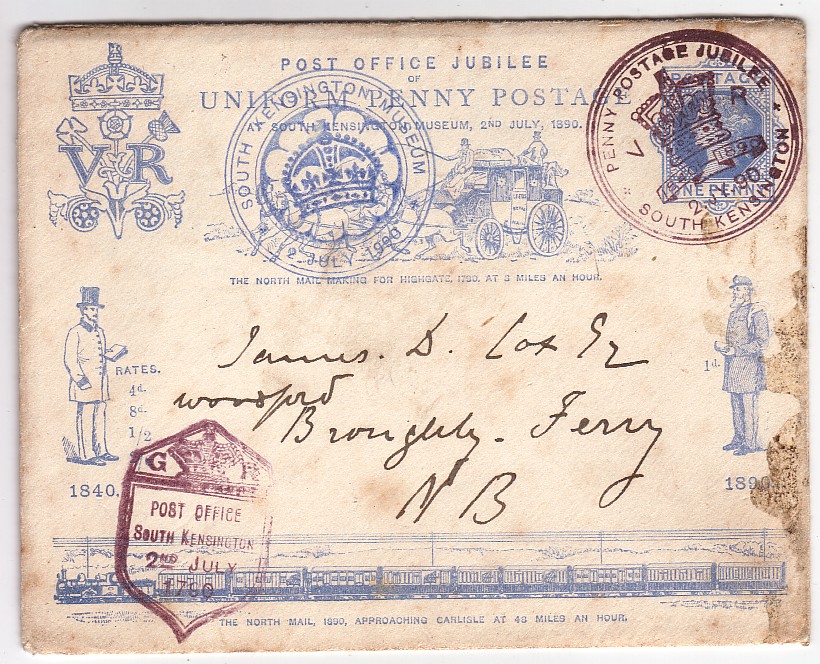 POST OFFICE JUBILEE
OF
UNIFORM PENNY POSTAGE
AT SOUTH KENSINGTON MUSEUM, 2ND JULY, 1890.
V R
SOUTH KENSINGTON MUSEUM
2 JULY 1890
PENNY POSTAGE JUBILEE
V R
2 JY 90
SOUTH KENSINGTON
POSTAGE
ONE PENNY
ROYAL MAIL
THE NORTH MAIL MAKING FOR HIGHGATE, 1790. AT 8 MILES AN HOUR.
RATES.
4d.
8d.
1/2
1840.
1d.
1890.
James. D. Cox Esq
Woodford
Broughty. Ferry
N B
G R
POST OFFICE
SOUTH KENSINGTON
2ND JULY
1790
THE NORTH MAIL, 1890, APPROACHING CARLISLE AT 48 MILES AN HOUR.